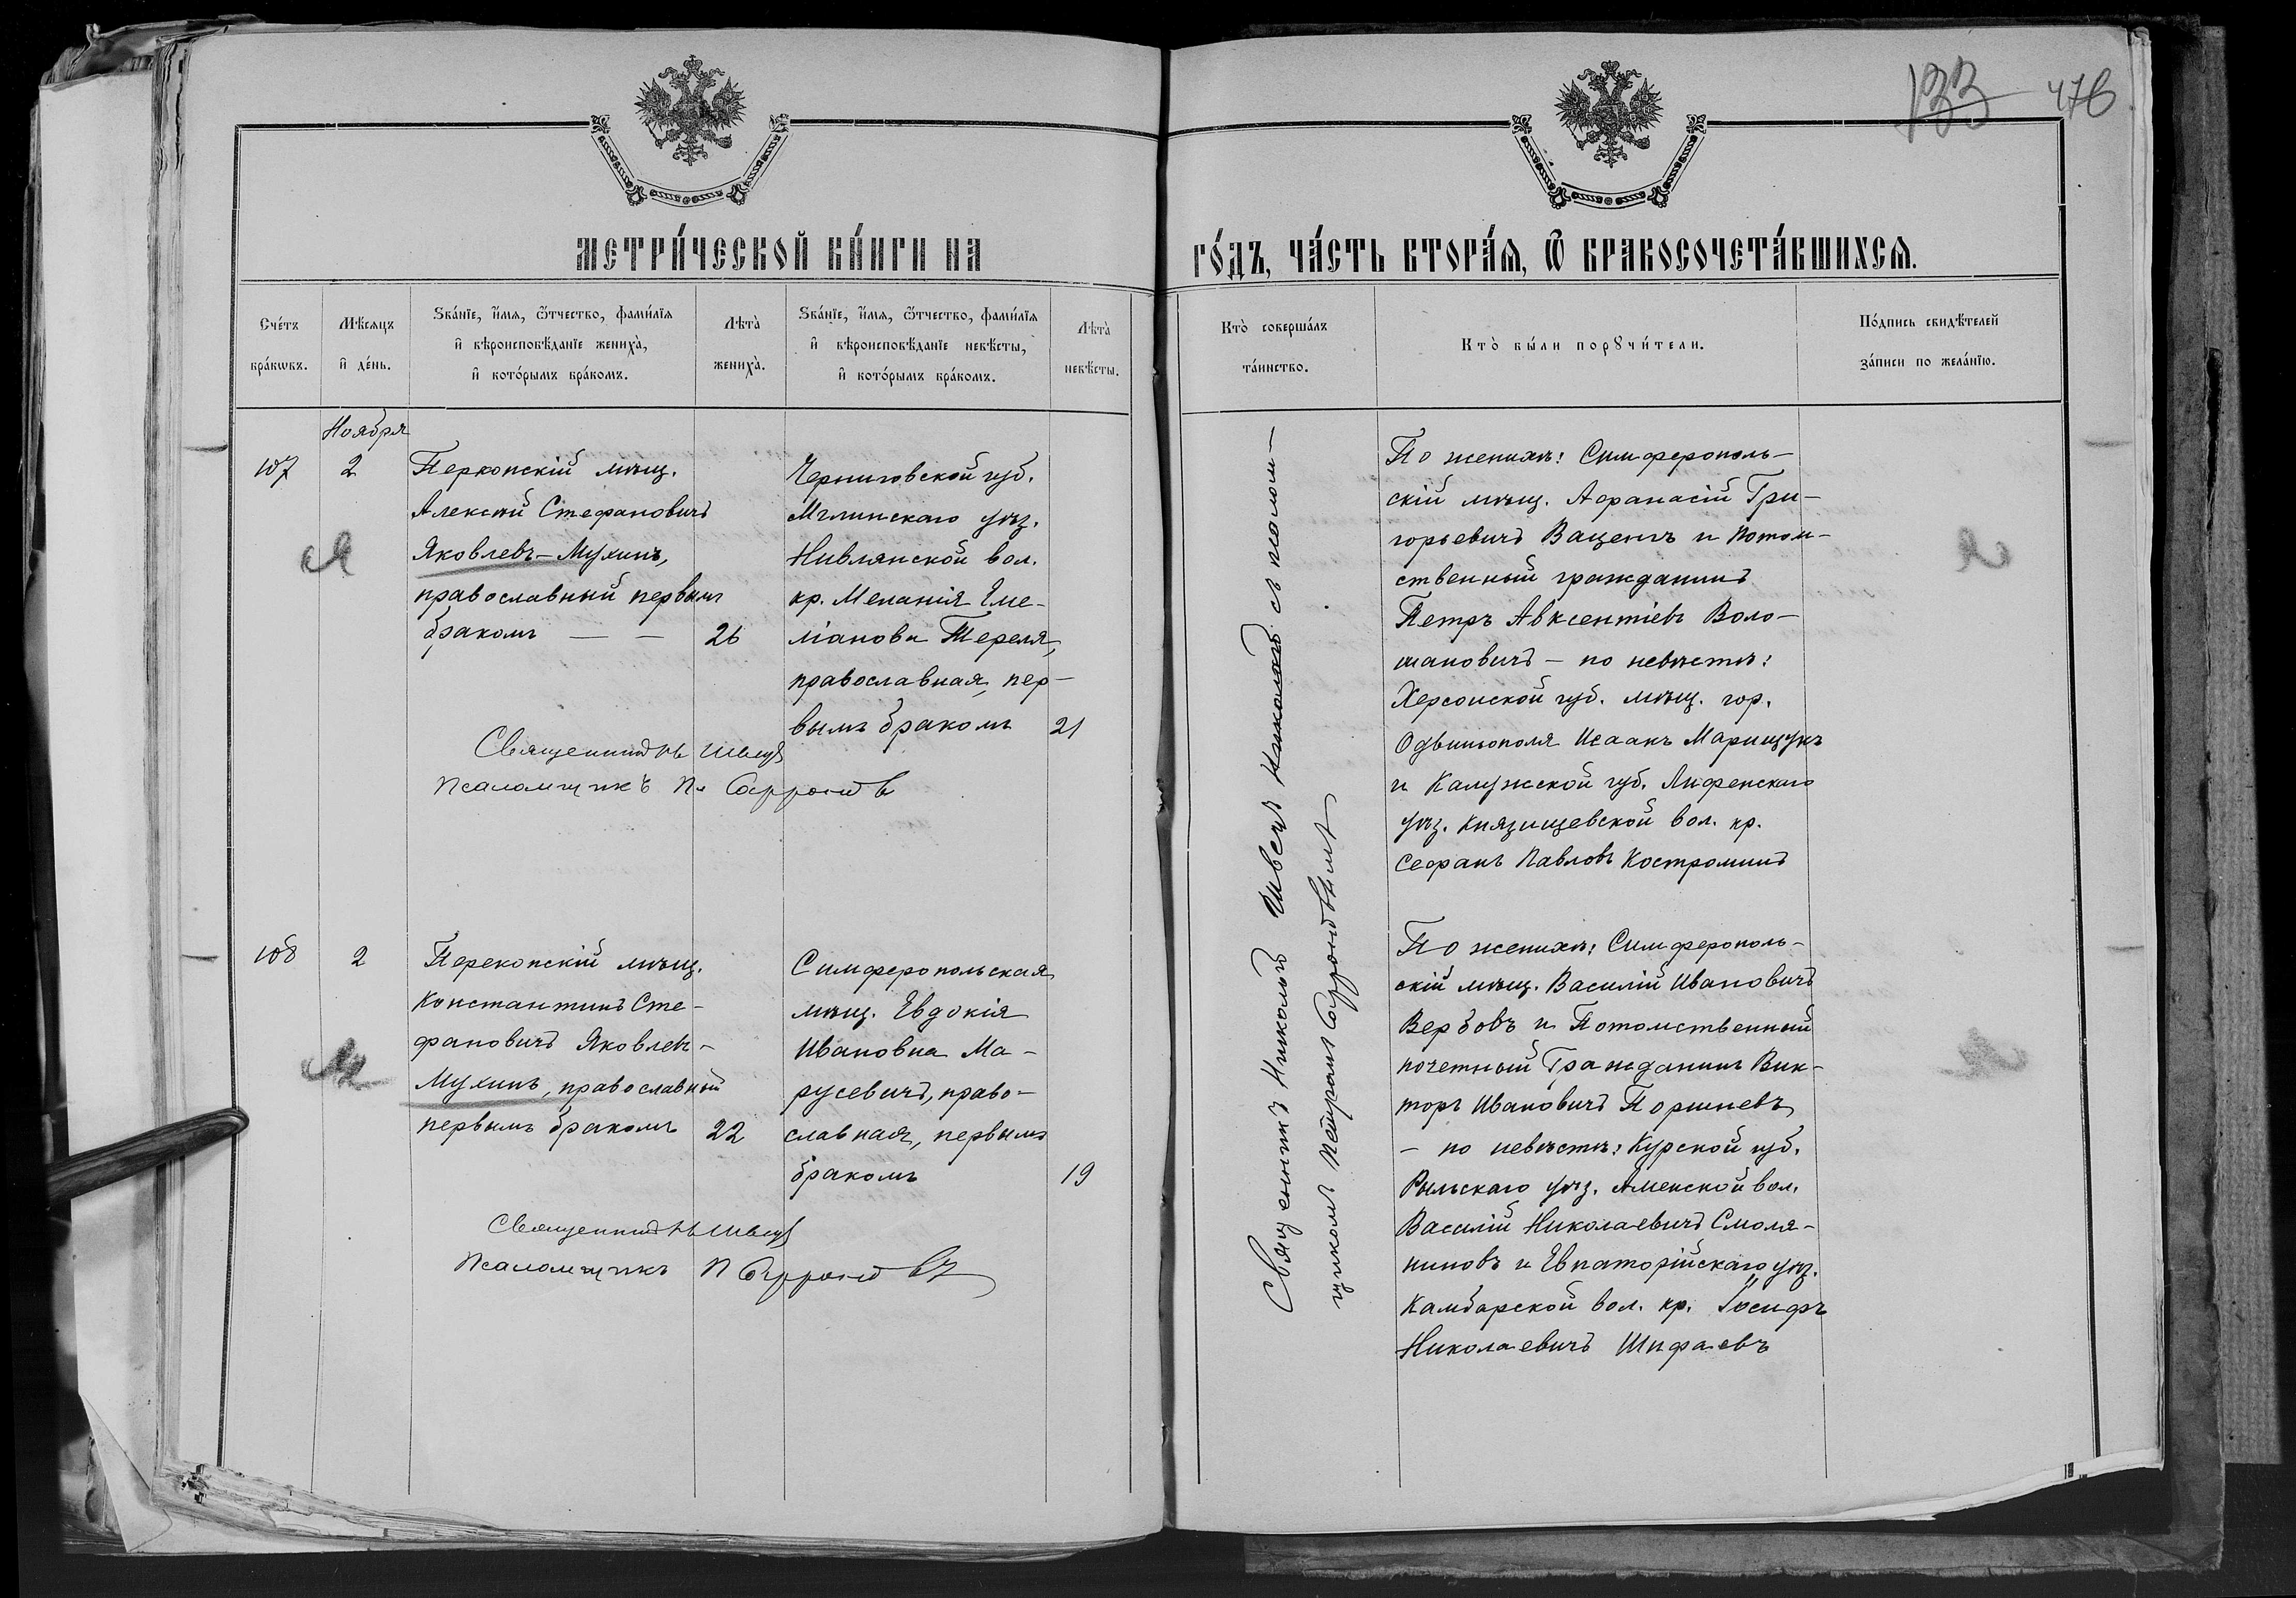 133 476
МЕТРИ́ЧЕСКОЙ КНИ́ГИ НА
ГО́ДЪ, ЧА́СТЬ ВТОРА́Ѧ, Ѿ БРАКОСОЧЕТА́ВШИХСѦ.
Сче́тъ
бра́кѡвъ.
Мѣ́сѧцъ
и҆ де́нь.
Ѕва́нїе, и҆́мѧ, ѻ҆́тчество, фами́лїѧ
и҆ вѣроисповѣ́данїе жениха̀,
и҆ кото́рымъ бра́комъ.
Лѣта̀
жениха̀.
Ѕва́нїе, и҆́мѧ, ѻ҆́тчество, фами́лїѧ
и҆ вѣроисповѣ́данїе невѣ́сты,
и҆ кото́рымъ бра́комъ.
Лѣта̀
невѣ́сты.
Кто̀ соверша́лъ
та́инство.
Кто̀ бы́ли порꙋчи́тели.
По́дпись свидѣ́телей
за́писи по жела́нїю.
Ноября
107
2
Перкопскій мѣщ.
Алексѣй Стефановичъ
Яковлевъ-Мухинъ,
православный первымъ
бракомъ — —
26
Черниговской губ.
Мглинскаго уѣз.
Нивлянской вол.
кр. Меланія Еме-
ліанова Тереля,
православная, пер-
вымъ бракомъ
21
Священникъ Н Швецъ
Псаломщикъ П. Софроновъ
Священникъ Николай Швецъ Николай съ псалом-
щикомъ Петромъ Софроновымъ
По женихѣ: Симферополь-
скій мѣщ. Афанасій Гри-
горьевичъ Ваценъ и потом-
ственный гражданинъ
Петръ Авксентіевъ Воло-
шановичъ — по невѣстѣ:
Херсонской губ. мѣщ. гор.
Одвиьополя Исаакъ Марищукъ
и Калужской губ. Лифенскаго
уѣз. Князищевской вол. кр.
Сефанъ Павловъ Костроминъ
108
2
Перекопскій мѣщ.
Константинъ Сте-
фановичъ Яковлевъ-
Мухинъ, православный
первымъ бракомъ
22
Симферопольская
мѣщ. Евдокія
Ивановна Ма-
русевичъ, право-
славная, первымъ
бракомъ
19
Священникъ Н Швецъ
Псаломщикъ П Софроновъ
По женихѣ: Симферополь-
скій мѣщ. Василій Ивановичъ
Вербовъ и Потомственный
почетный Гражданинъ Вик-
торъ Ивановичъ Поршневъ
— по невѣстѣ: Курской губ.
Рыльскаго уѣз. Аменской вол.
Василій Николаевичъ Смоля-
ниновъ и Евпаторійскаго уѣз.
Камбарской вол. кр. Іосифъ
Николаевичъ Шифаевъ